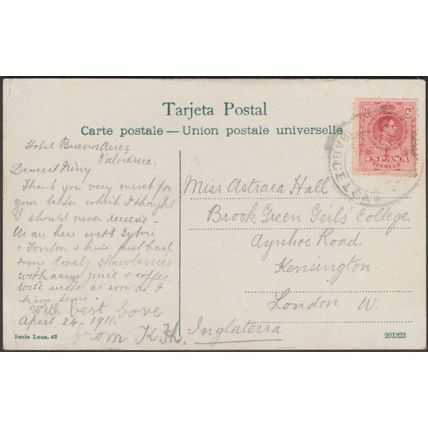 Tarjeta Postal
Carte postale — Union postale universelle
Hotel Buenos Aires
Valvidrera.
Dearest
Thank you very much for
your letter which I thought
I should never receive.
We are here with Sybil
& & have just had
some lovely strawberries
with orange juice & coffee
will write as soon as I
have time.
With best love
April 24. 1911.
from K.H.
Miss Astraea Hall
Brook Green Girls College,
Aynhoe Road.
Kensington.
London W.
Inglaterra
10 Cs
ESPAÑA
Serie Leon. 47
201323